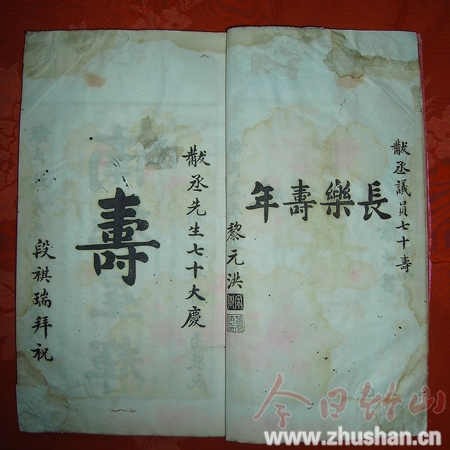 黻丞議員七十壽
長樂壽年
黎元洪
黻丞先生七十大慶
壽
段祺瑞拜祝
今日竹山
www.zhushan.cn